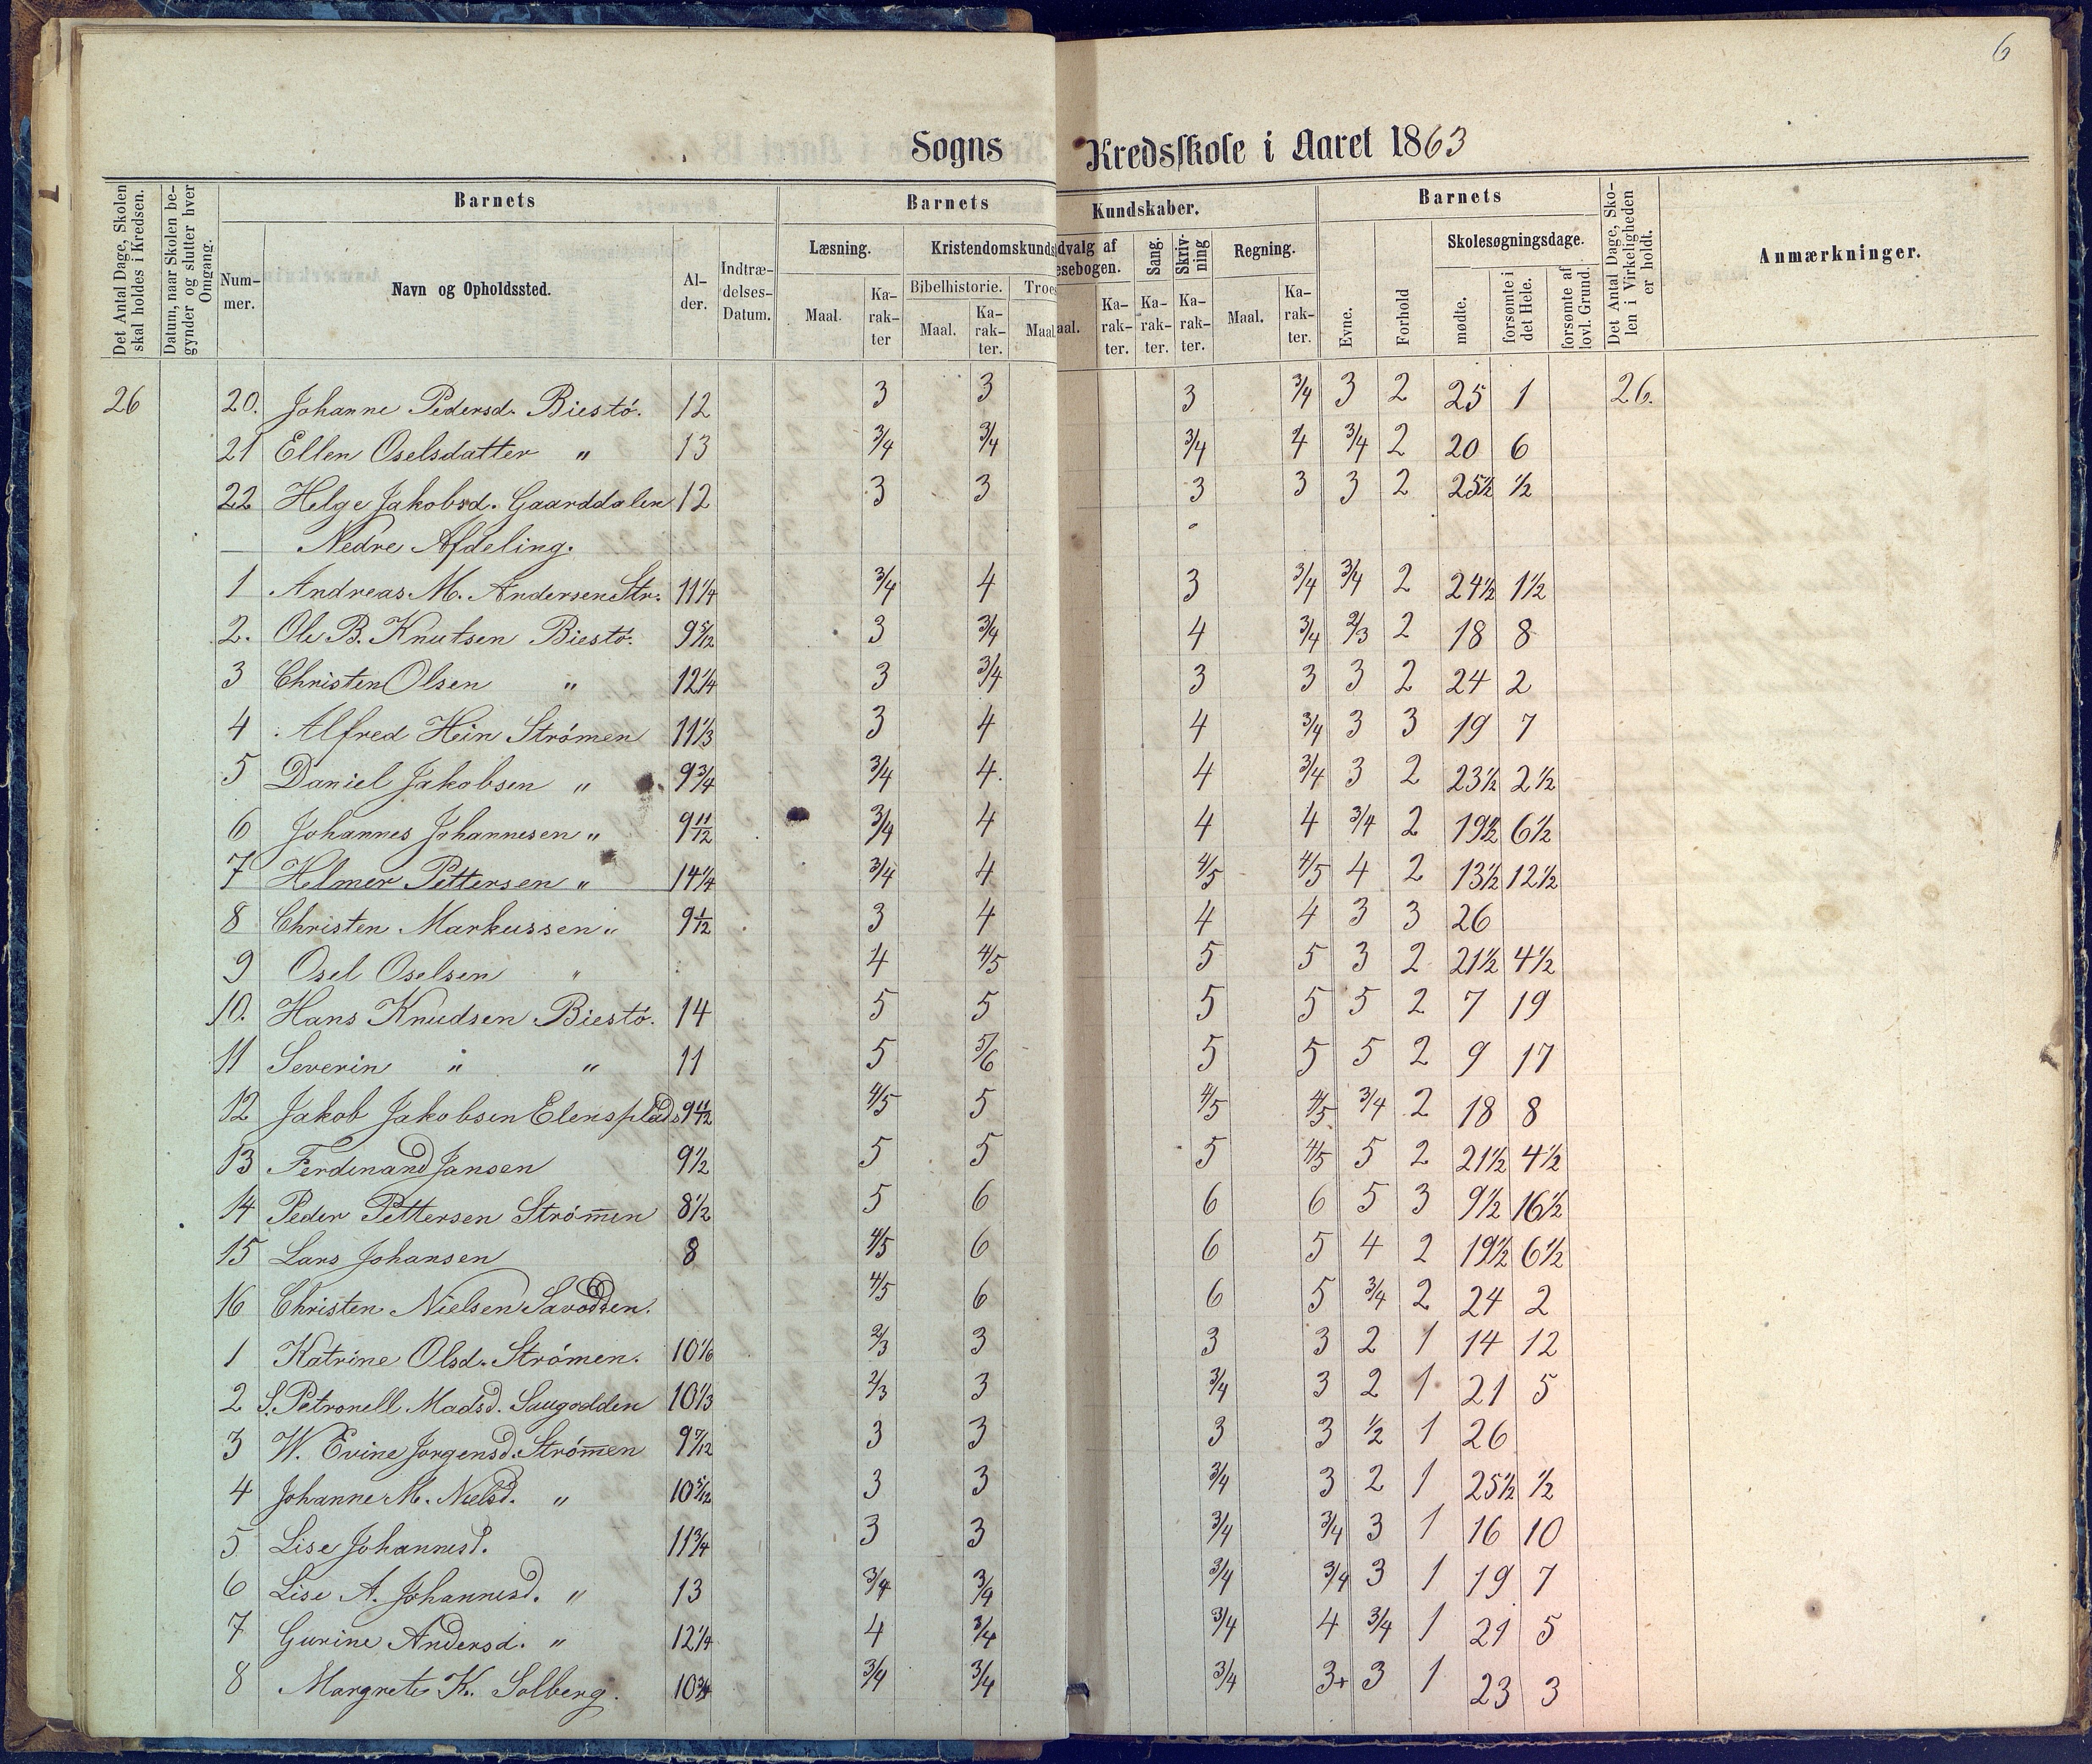 6
Sogns Kredsskole i Aaret 1863
Det Antal Dage, Skolen skal holdes i Kredsen.
Datum, naar Skolen begynder og slutter hver Omgang.
Barnets
Num-mer.
Navn og Opholdssted.
Al-der.
Indtræ-delses-Datum.
Barnets Kundskaber.
Læsning.
Kristendomskunds
dvalg af
esebogen.
Sang.
Skriv-ning
Regning.
Bibelhistorie.
Troes
Maal.
Ka-rak-ter
Maal.
Ka-rak-ter.
Maal
aal.
Ka-rak-ter.
Ka-rak-ter.
Ka-rak-ter.
Maal.
Ka-rak-ter.
Barnets
Evne.
Forhold
Skolesøgningsdage.
mødte.
forsømte i det Hele.
forsømte af lovl. Grund.
Det Antal Dage, Sko-len i Virkeligheden er holdt.
Anmærkninger.
26 20. Johanne Pedersd. Biestö. 12 3 3 3 3/4 3 2 25 1 26.
21 Ellen Oselsdatter " 13 3/4 3/4 3/4 4 3/4 2 20 6
22 Helge Jakobsd. Gaarddalen 12 3 3 3 3 3 2 25½ ½
Nedre Afdeling.
1 Andreas M. Andersen Str. 11¼ 3/4 4 3 3/4 3/4 2 24½ 1½
2. Ole B. Knutsen Biestö. 9 5/12 3 3/4 4 3/4 2/3 2 18 8
3 Christen Olsen " 12¼ 3 3/4 3 3 3 2 24 2
4 Alfred Hein Strömen 11⅓ 3 4 4 3/4 3 3 19 7
5 Daniel Jakobsen " 9¾ 3/4 4. 4 3/4 3 2 23½ 2½
6 Johannes Johannesen " 9 11/12 3/4 4 4 4 3/4 2 19½ 6½
7 Helmer Pettersen " 14¼ 3/4 4 4/5 4/5 4 2 13½ 12½
8 Christen Markussen " 9 1/12 3 4 4 4 3 3 26
9 Osel Oselsen " 4 4/5 5 5 3 2 21½ 4½
10. Hans Knudsen Biestö. 14 5 5 5 5 5 2 7 19
11 Severin " " 11 5 5/6 5 5 5 2 9 17
12 Jakob Jakobsen Elensplads 9 11/12 4/5 5 4/5 4/5 3/4 2 18 8
13 Ferdinand Jansen 9½ 5 5 5 4/5 5 2 21½ 4½
14 Peder Pettersen Strömen 8½ 5 6 6 6 5 3 9½ 16½
15 Lars Johansen 8 4/5 6 6 5 4 2 19½ 6½
16 Christen Nielsen 4/5 6 6 5 3/4 2 24 2
1 Katrine Olsd. Strömen. 10 1/6 2/3 3 3 3 2 1 14 12
2 S. Petronell Madsd. Saugodden 10⅓ 2/3 3 3/4 3 2 1 21 5
3 W. Evine Jorgensd. Strömen 9 7/12 3 3 3 3 ½ 1 26
4 Johanne M. Nielsd. " 10 5/12 3 3 3/4 3 2 1 25½ ½
5 Lise Johannesd. 11¾ 3 3 3/4 3/4 3 1 16 10
6 Lise A. Johannesd. " 13 3/4 3/4 3/4 3/4 3 1 19 7
7 Gurine Andersd. " 12¼ 4 3/4 3/4 4 3/4 1 21 5
8 Margrete K. Solberg. 10¾ 3/4 3/4 3/4 3+ 3 1 23 3